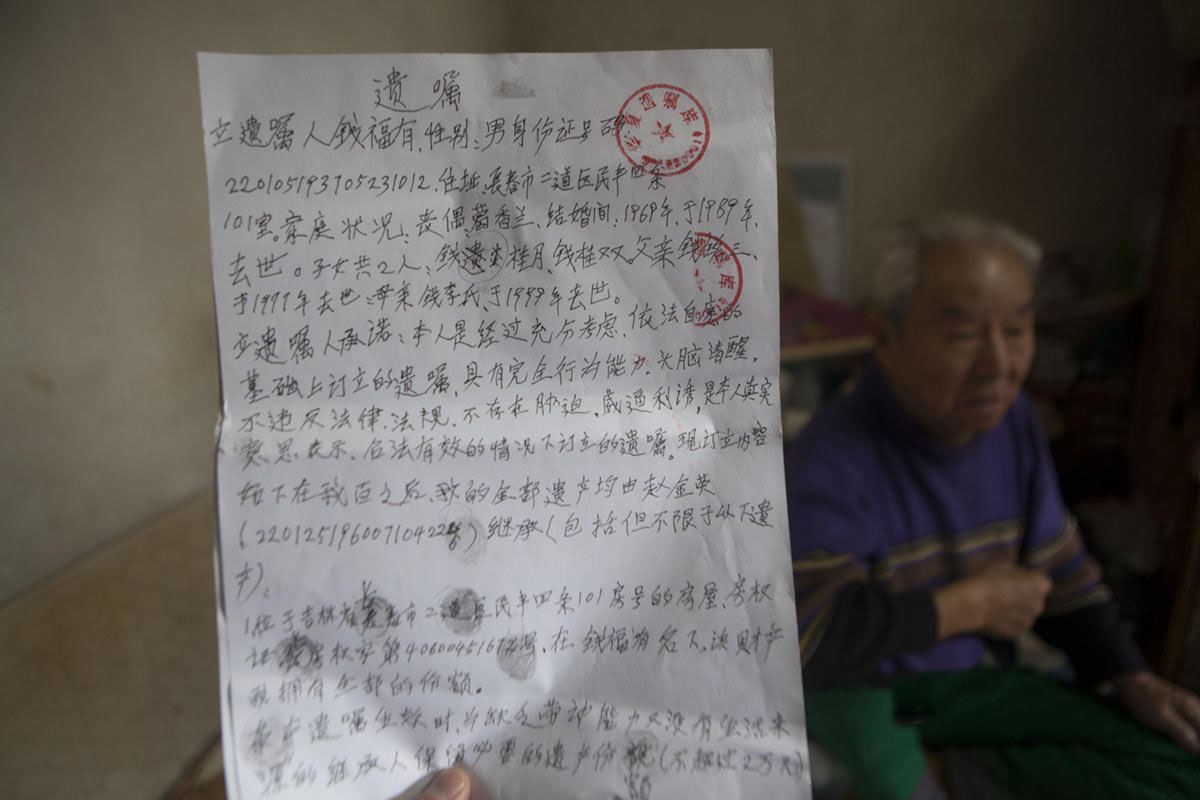 遗嘱
立遗嘱人钱福有,性别:男身份证号码:
220105193705231012.住址:长春市二道区民丰四条
101室。家庭状况:丧偶,葛香兰、结婚间,1969年,于1989年,
去世。子女共2人:钱桂月、钱桂双。父亲钱
于1997年去世,母亲钱李氏,于1999年去世。
立遗嘱人承诺:本人是经过充分考虑、依法自愿的
基础上订立的遗嘱,具有完全行为能力、头脑清醒,
不违反法律、法规、不存在胁迫、威逼利诱,是本人真实
意思表示、合法有效的情况下订立的遗嘱。现订立内容
如下在我百之后、我的全部遗产均由赵金英
(2201251960071042)继承(包括但不限于以下遗
产):
1.位于吉林省长春市二道区民丰四条101房号的房屋、房权
证房权字第号、在钱福有名下、该财产
我拥有全部的份额。
在本遗嘱生效时,为缺乏劳动能力又没有生活来
源的继承人保留必要的遗产份额(不超过2万元)
遗嘱库
库